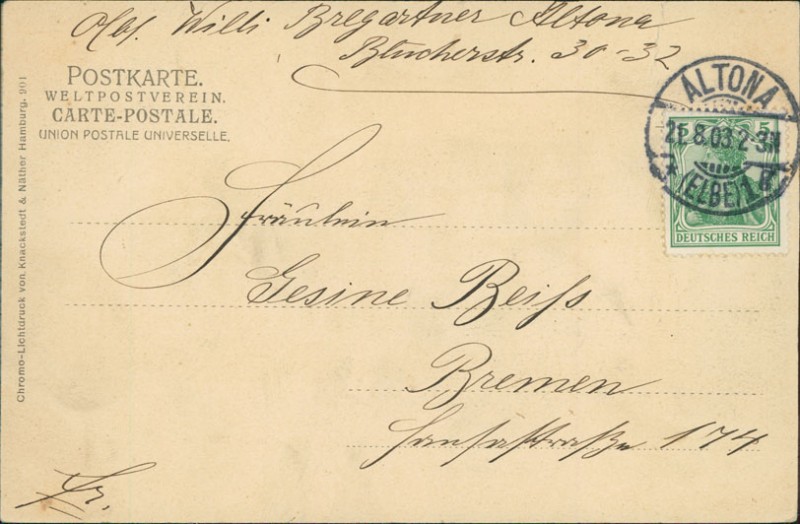 Abs. Willi Bregartner Altona
Blücherstr. 30-32
POSTKARTE.
WELTPOSTVEREIN.
CARTE-POSTALE.
UNION POSTALE UNIVERSELLE.
Chromo-Lichtdruck von Knackstedt & Näther Hamburg. 901
ALTONA
21.8.03.2-3N
(ELBE)1
5 5
DEUTSCHES REICH
Fräulein
Gesine Beiss
Bremen
Hansastraße 174
Fr.